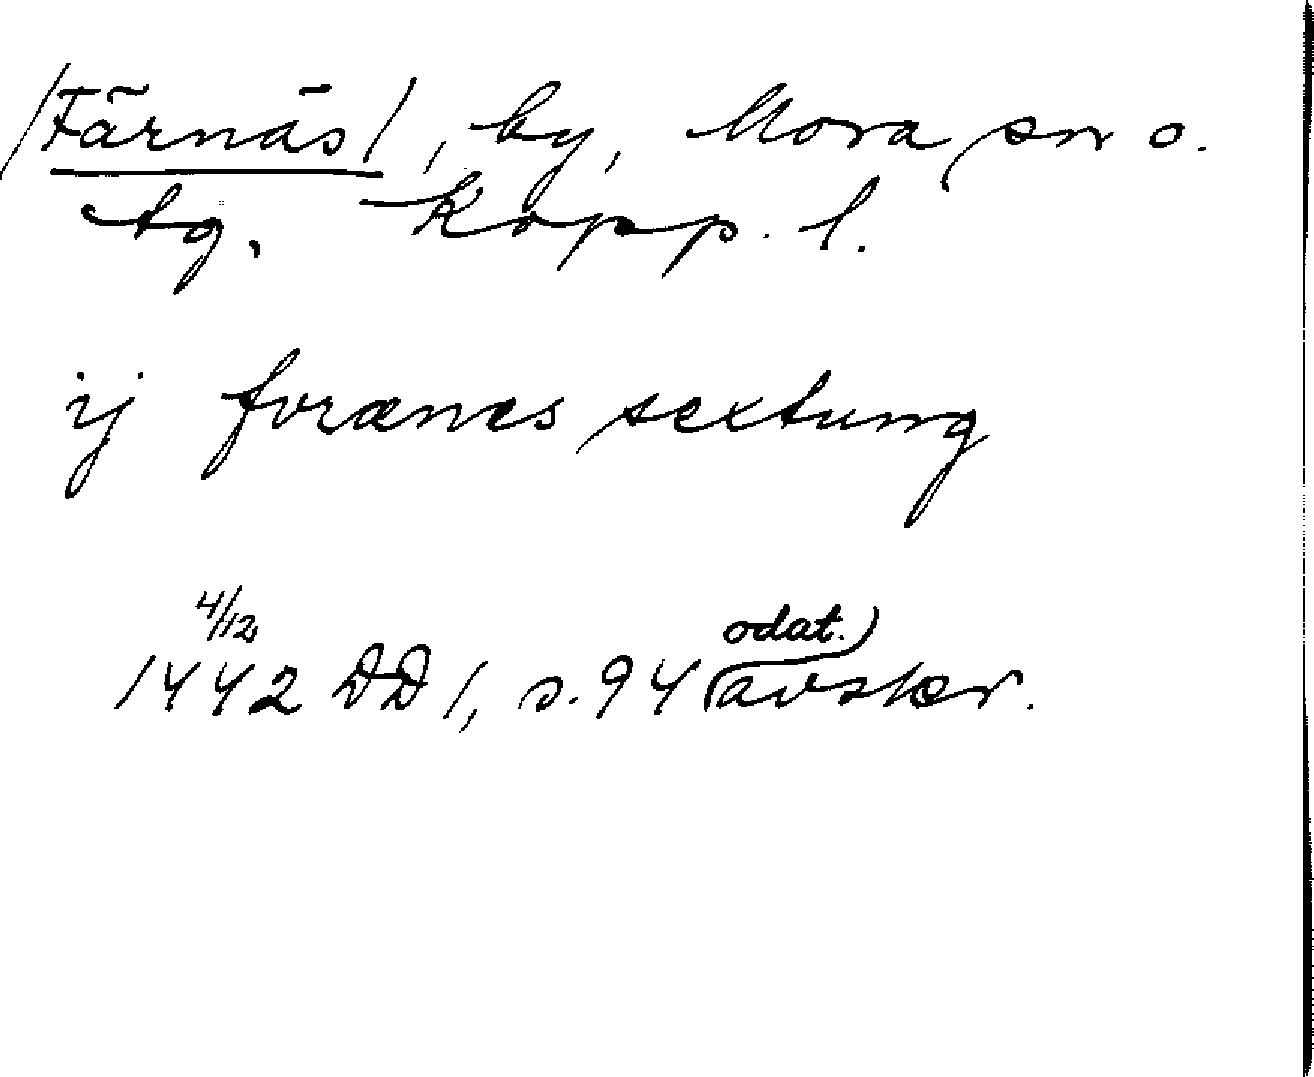 /Färnäs/, by, Mora sn o.
tg. Kopp. l.
ij forænes sextung
4/12 odat.)
1442 DD 1, s. 94 (avskr.